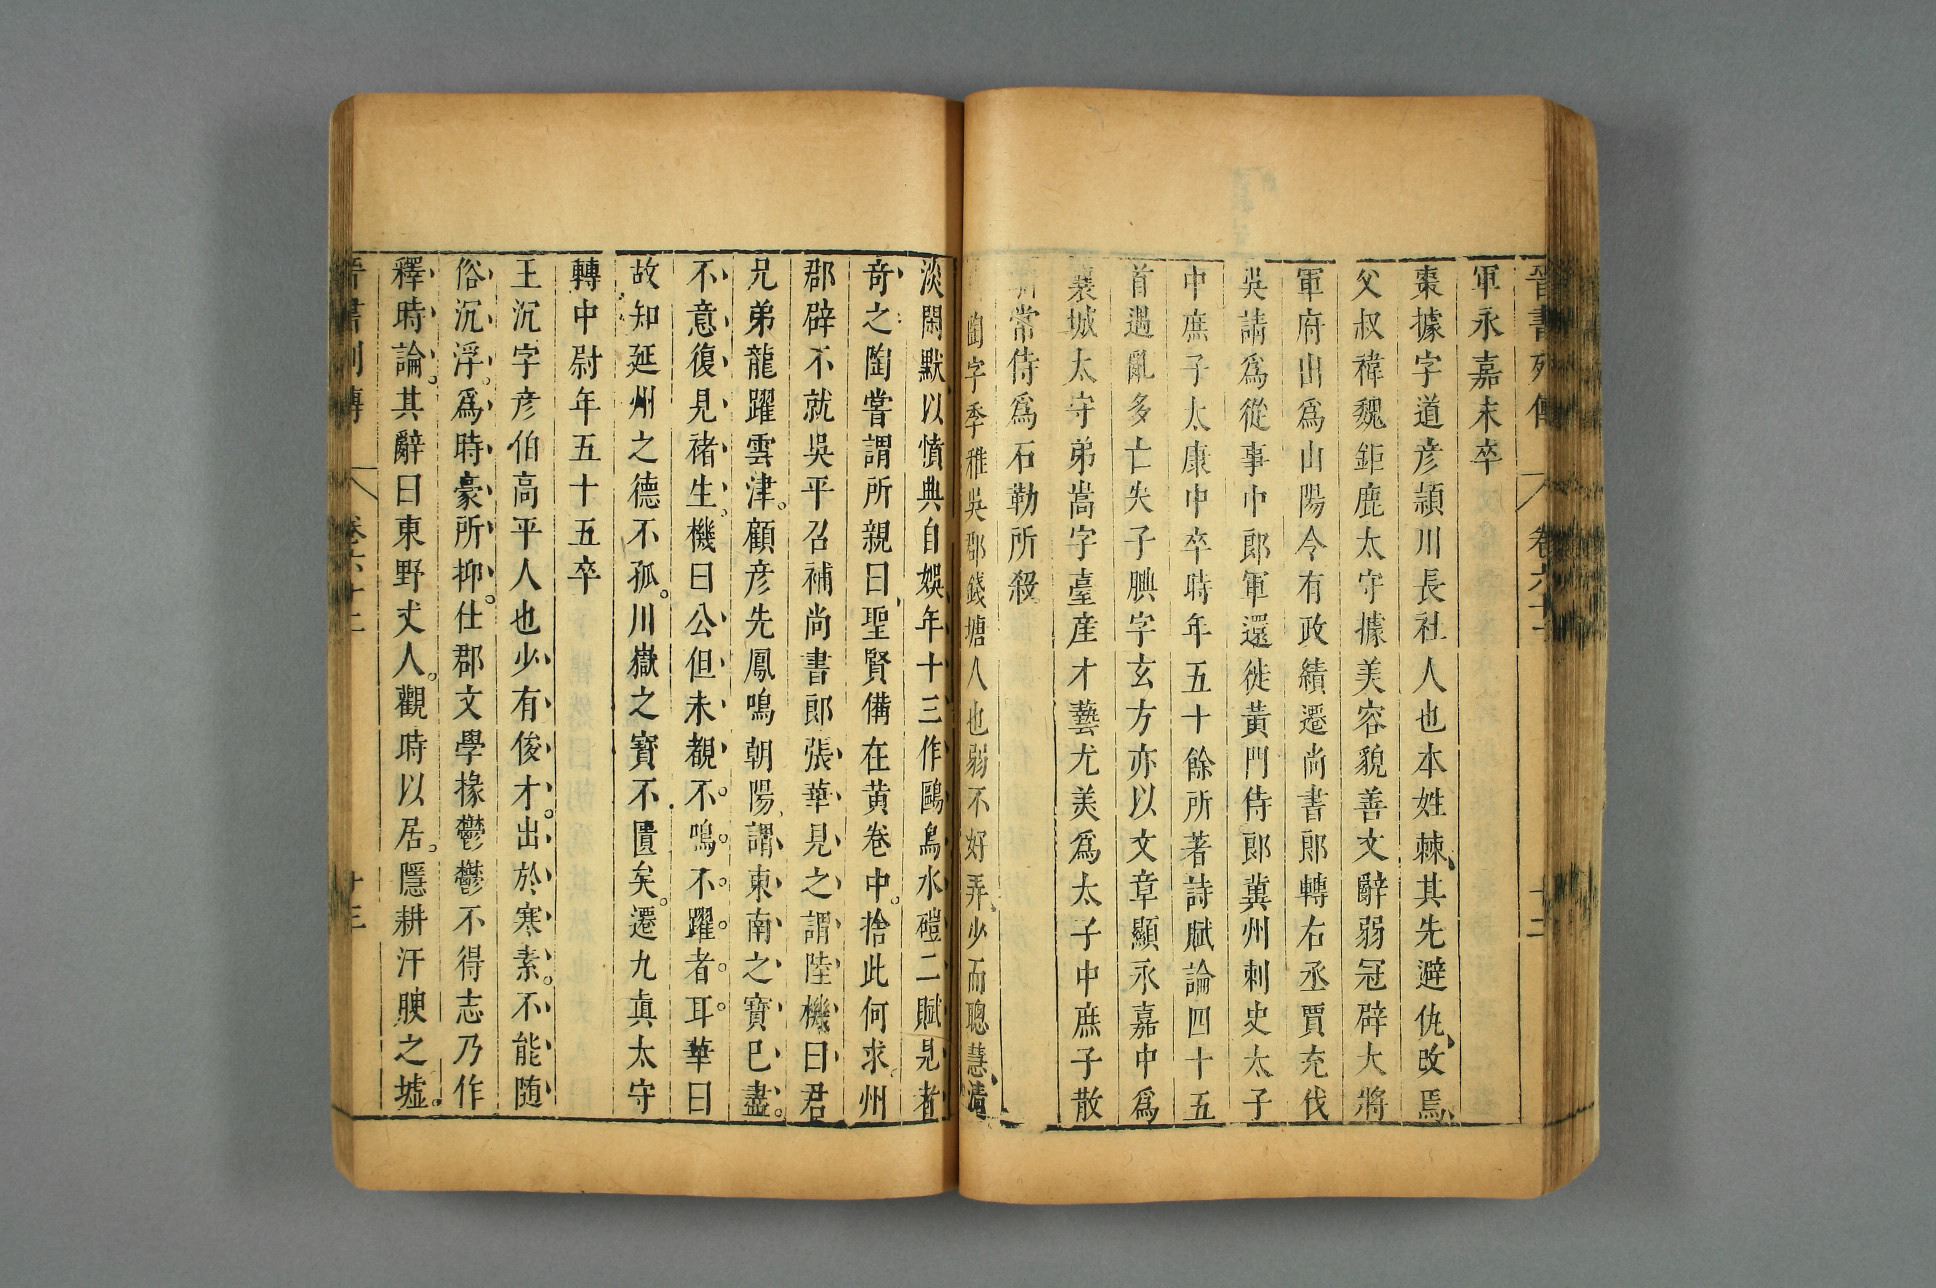 晉書列傳 卷六十二 十二
軍永嘉末卒
棗據字道彦頴川長社人也本姓棘其先避仇改焉
父叔禕魏鉅鹿太守據美容貌善文辭弱冠辟大將
軍府出爲山陽令有政績遷尚書郎轉右丞賈充伐
吳請爲從事中郎軍還徙黃門侍郎冀州刺史太子
中庶子太康中卒時年五十餘所著詩賦論四十五
首遇亂多亡失子腆字玄方亦以文章顯永嘉中爲
襄城太守弟嵩字臺産才藝尤美爲太子中庶子散
常侍爲石勒所殺
陶字季雅吳郡錢塘人也弱不好弄少而聰慧清
淡閑默以憤典自娛年十三作鷗鳥水磑二賦見者
奇之陶嘗謂所親曰聖賢備在黃卷中捨此何求州
郡辟不就吳平召補尚書郎張華見之謂陸機曰君
兄弟龍躍雲津顧彦先鳳鳴朝陽謂東南之寶已盡
不意復見褚生機曰公但未覩不鳴不躍者耳華曰
故知延州之德不孤川嶽之寶不匱矣遷九真太守
轉中尉年五十五卒
王沉字彦伯高平人也少有俊才出於寒素不能随
俗沉浮爲時豪所抑仕郡文學掾鬱鬱不得志乃作
釋時論其辭曰東野丈人觀時以居隱耕汙腴之墟
晉書列傳 卷六十二 十三